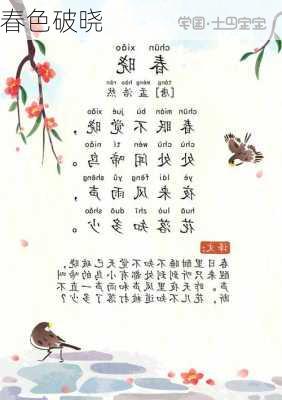 春色破晓
宝宝巴士·国学
chūn xiǎo
春晓
táng mèng hào rán
[唐] 孟浩然
chūn mián bù jué xiǎo
春眠不觉晓，
chù chù wén tí niǎo
处处闻啼鸟。
yè lái fēng yǔ shēng
夜来风雨声，
huā luò zhī duō shǎo
花落知多少。
译文：
春日里酣睡不知不觉天已破晓，
醒来只听到到处都有小鸟的啼叫
声。昨天夜里风声和雨声一直不
断，花儿不知道被打落了多少？